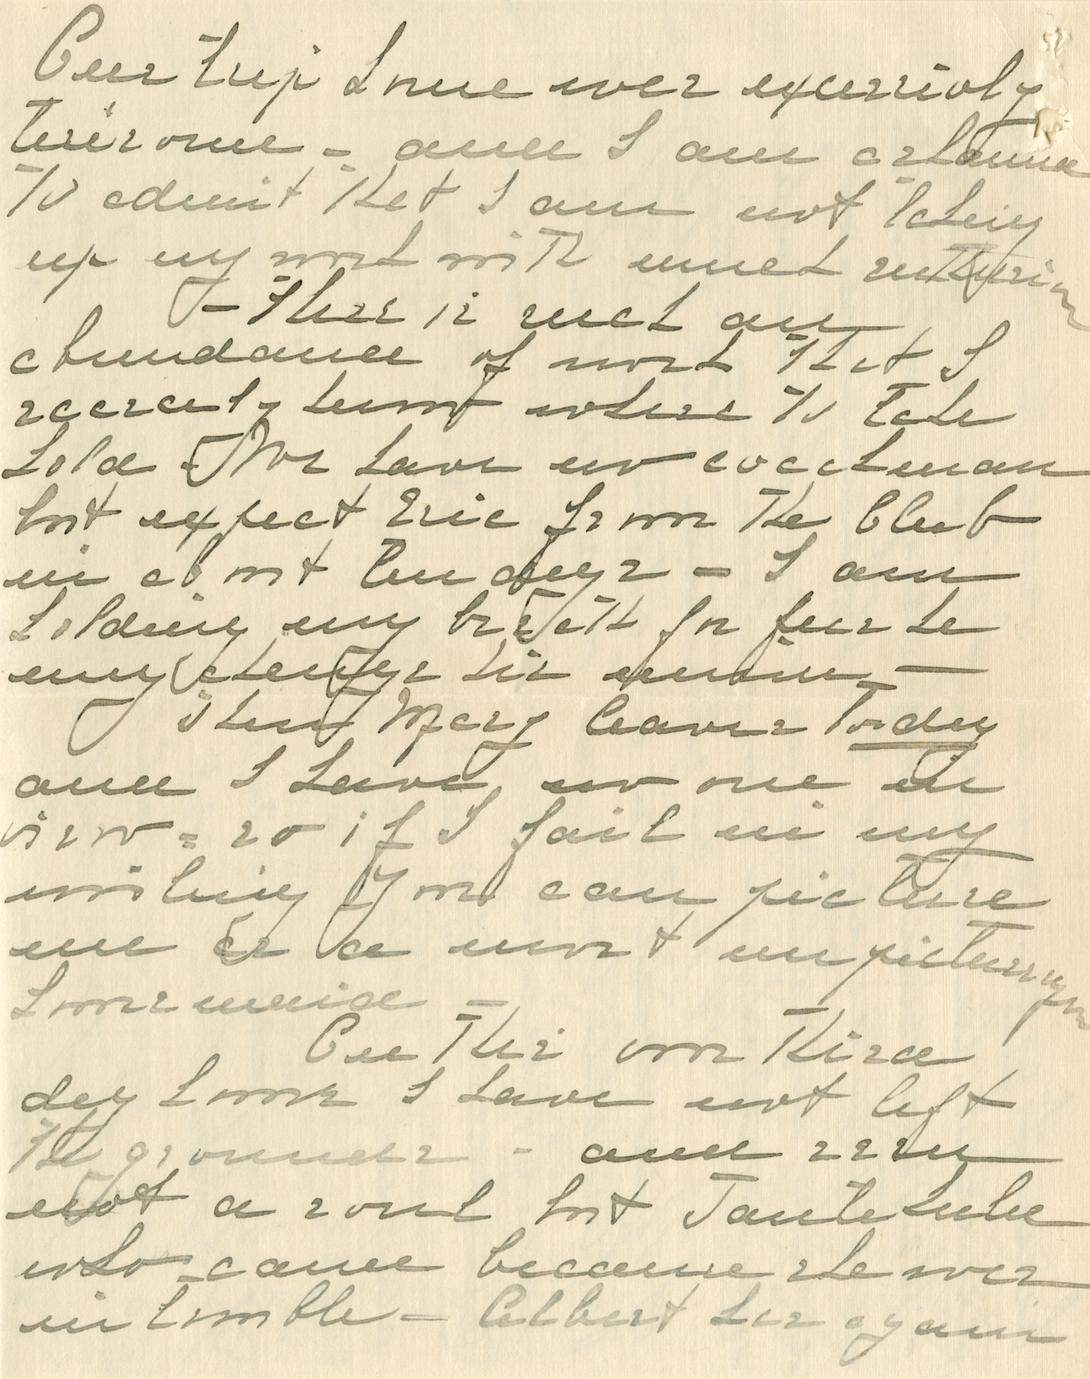 Our trip home was excessively
tiresome - and I am ashamed
to admit that I am not taking
up my work with much enthusiasm
- There is such an
abundance of work that I
scarcely know where to take
hold - We have no coachman
but expect Eric from the Club
in about ten days - I am
holding my breath for fear he
may change his mind -
Then Mary leaves today
and I have no one in
view = so if I fail in my
writing you can picture
me as a most unpicturesque
housemaid -
On this our third
day home I have not left
the grounds - and seen
not a soul but Tante Lulu
who came because she was
in trouble - Albert has again